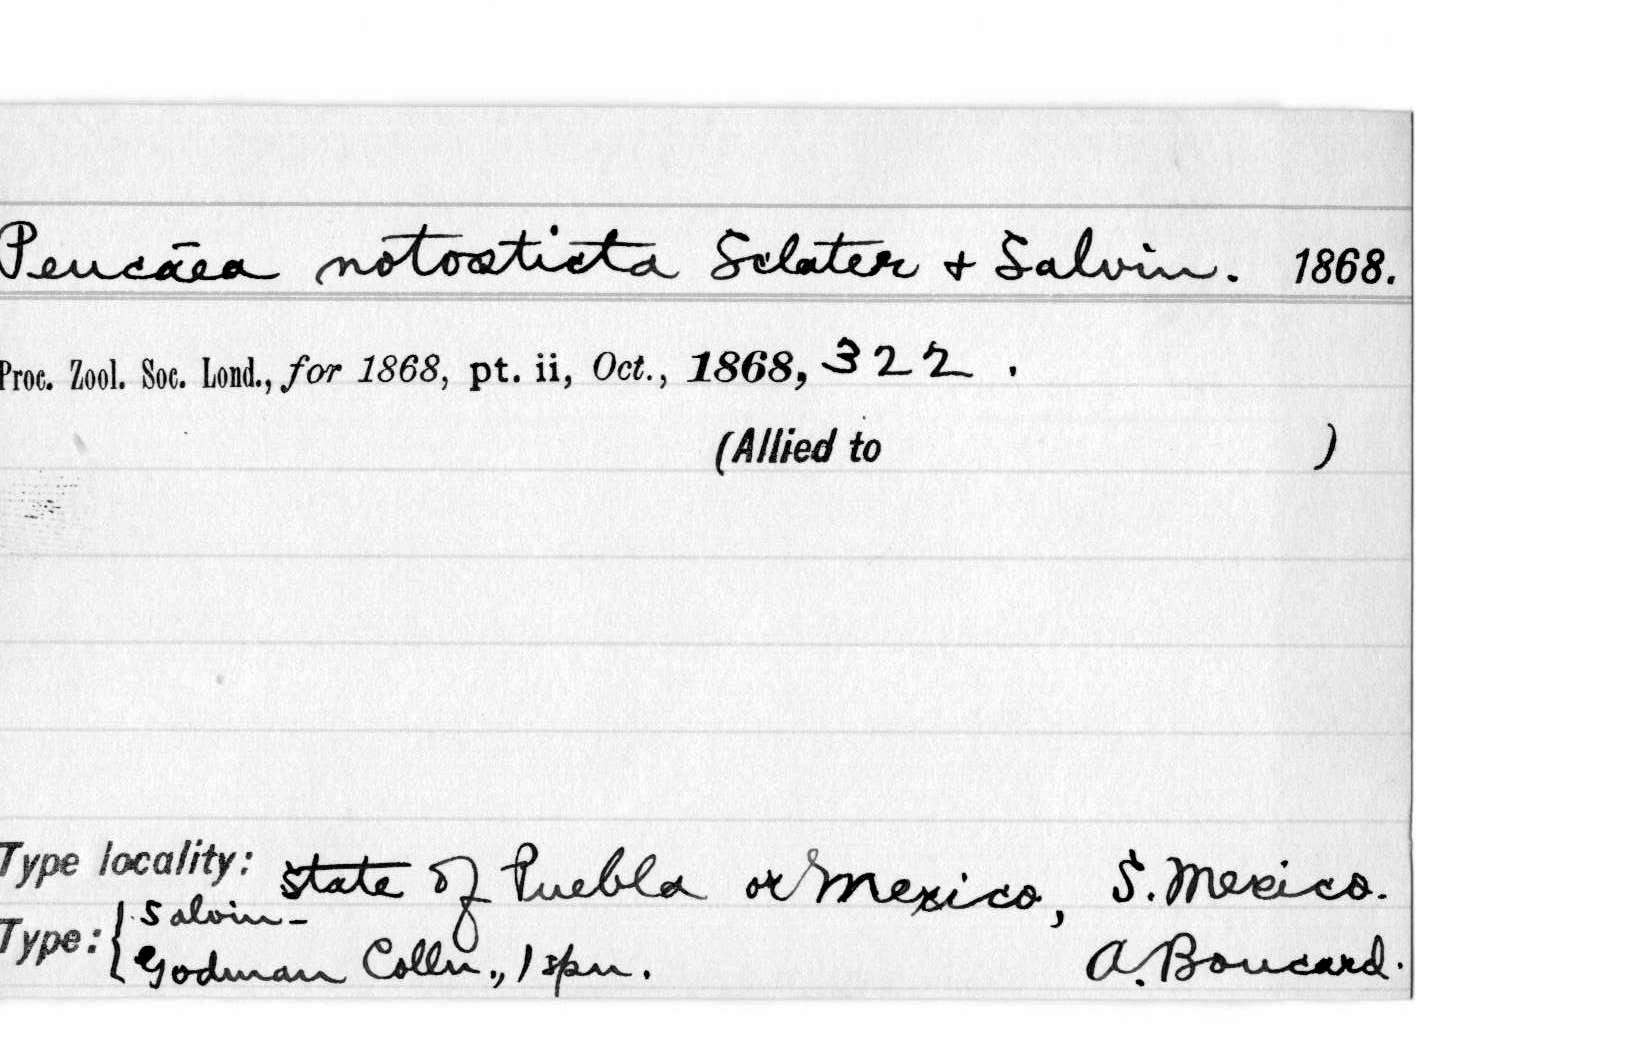 Peucaea notosticta Sclater & Salvin. 1868.
Proc. Zool. Soc. Lond., for 1868, pt. ii, Oct., 1868, 322.
(Allied to )
Type locality: State of Puebla or Mexico, S. Mexico.
Type: { Salvin-
Godman Colln., 1 spn. A. Boucard.